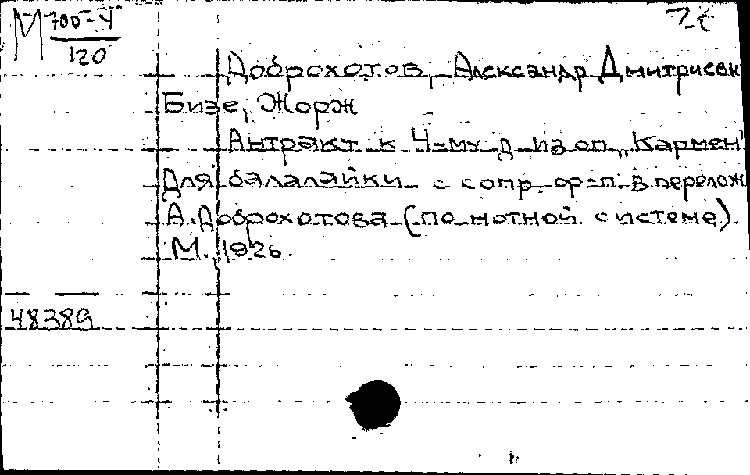 М 700-У
120
Доброхотов, Александр Дмитриевич
Бизе, Жорж
Антракт к 4-му д. из оп. „Кармен"
Для балалайки с сопр. ор-п. в перелож
А. Доброхотова (по нотной системе).
М. 1926.
48389